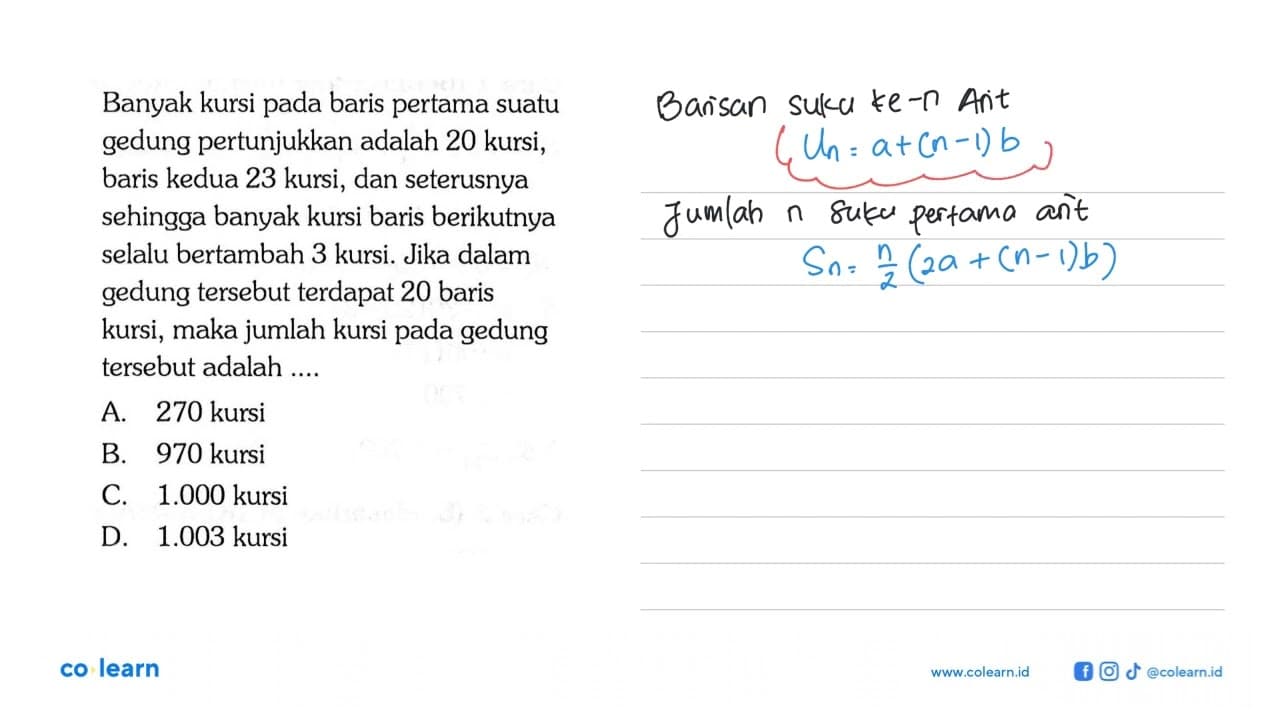 Banyak kursi pada baris pertama suatu
gedung pertunjukkan adalah 20 kursi,
baris kedua 23 kursi, dan seterusnya
sehingga banyak kursi baris berikutnya
selalu bertambah 3 kursi. Jika dalam
gedung tersebut terdapat 20 baris
kursi, maka jumlah kursi pada gedung
tersebut adalah ....
A. 270 kursi
B. 970 kursi
C. 1.000 kursi
D. 1.003 kursi
Barisan suku ke-n Arit
Un = a + (n-1) b
Jumlah n suku pertama arit
Sn = n/2 (2a + (n-1)b)
co learn
www.colearn.id
@colearn.id